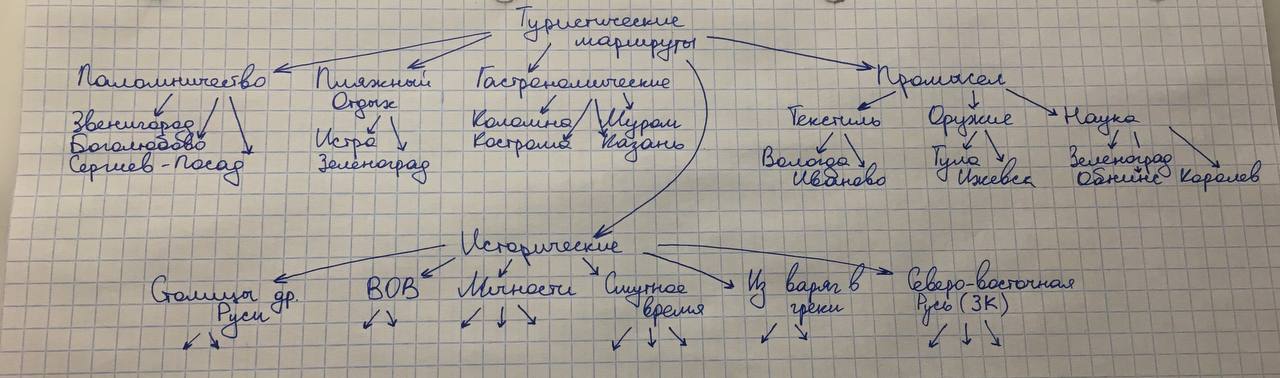 Туристические
маршруты
Паломничество
Звенигород
Боголюбово
Сергиев-Посад
Пляжный
Отдых
Истра
Зеленоград
Гастрономические
Коломна
Кострома
Муром
Казань
Промысел
Текстиль
Вологда
Иваново
Оружие
Тула
Ижевск
Наука
Зеленоград
Обнинс
Королев
Исторические
Столицы др.
Руси
ВОВ
Личности
Смутное
время
Из варяг в
греки
Северо-восточная
Русь (ЗК)